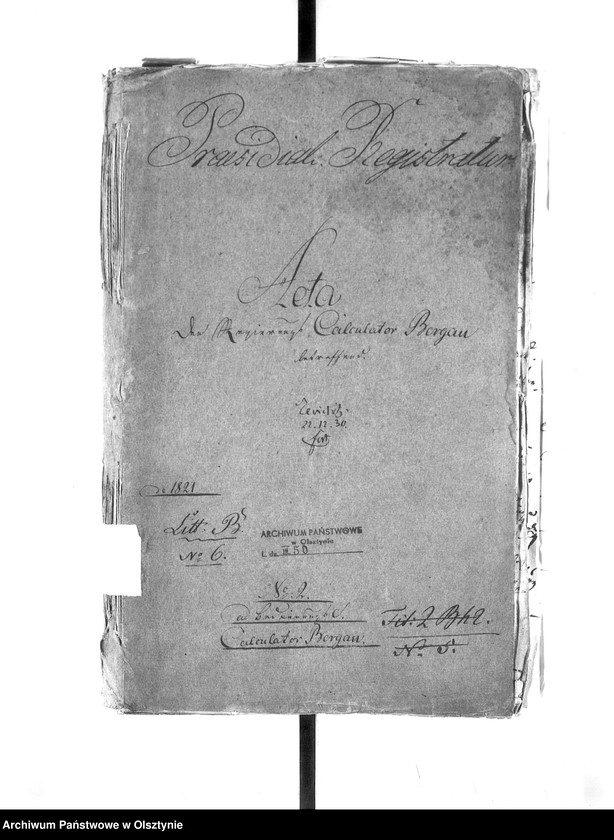 Præsidial. Registratur
Acta
den Regierungs Calculator Borgau
betreffend.
22.11.30.
de 1821
Litt: B.
No 6.
ARCHIWUM PAŃSTWOWE
w Olsztynie
L. dz. III 50
No. 2.
Calculator Borgau.
Tit: 2
No. 5.
Archiwum Państwowe w Olsztynie